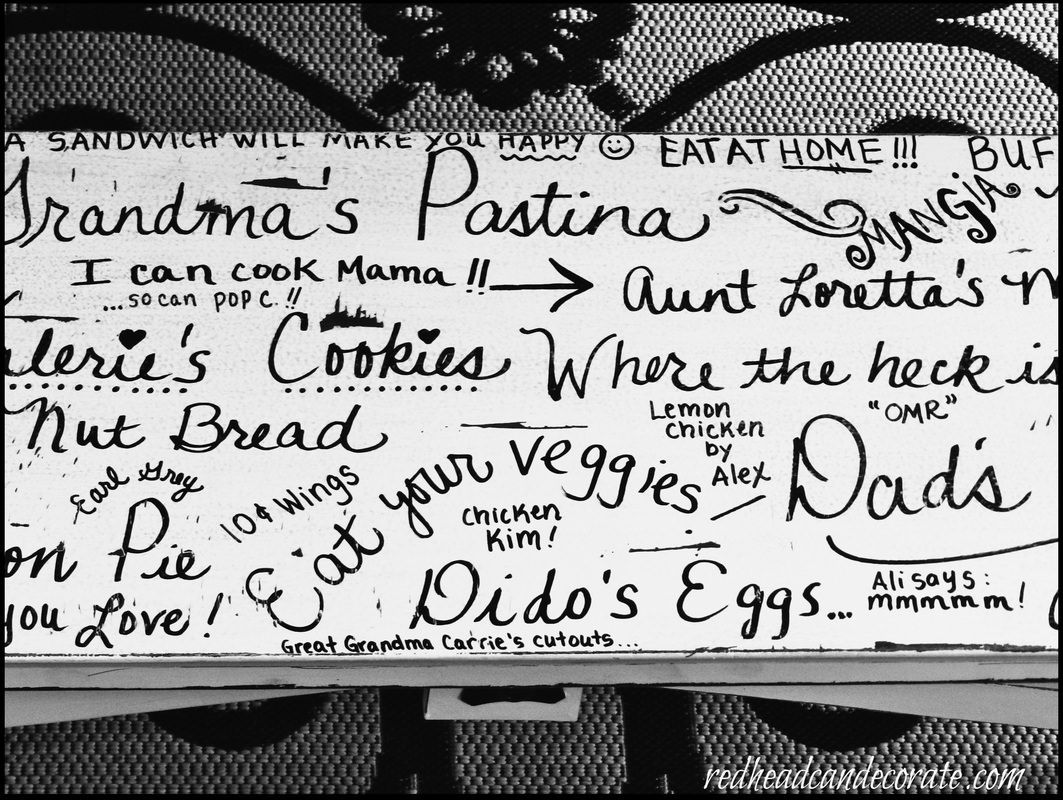 A SANDWICH WILL MAKE YOU HAPPY ☺ EAT AT HOME!!! BUF
Grandma's Pastina MANGIA
I can cook Mama!! → Aunt Loretta's
...so can pop c.!!
alerie's Cookies Where the heck is
Nut Bread
"OMR"
Lemon
chicken
by
Alex
Dad's
Earl Grey
10¢ Wings
Eat your veggies
chicken
Kim!
on Pie
Dido's Eggs...
Ali says:
mmmmm!
you Love!
Great Grandma Carrie's cutouts...
redheadcandecorate.com